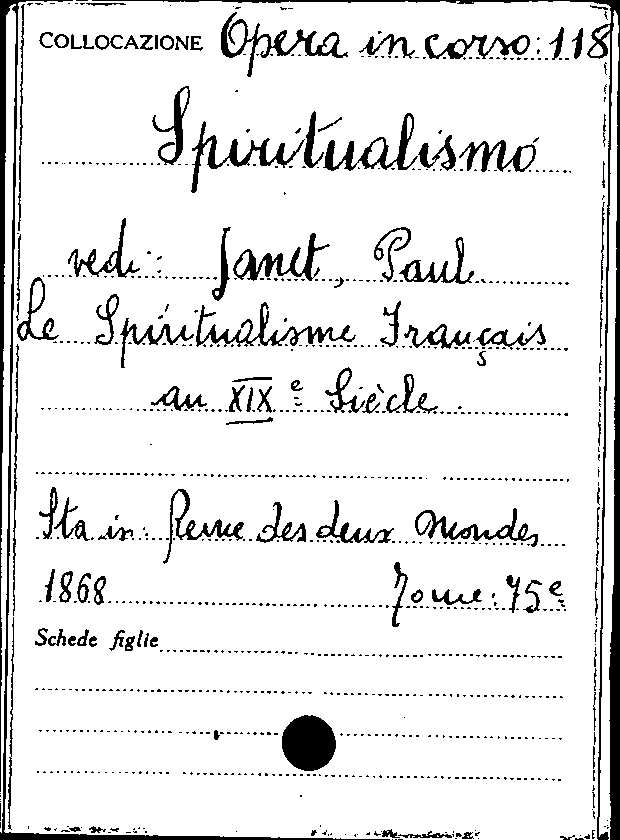 COLLOCAZIONE Opera in corso: 118
Spiritualismo
vedi: Janet, Paul
Le Spiritualisme Français
au XIXe Siècle.
Sta in: Revue des deux Mondes
1868 Tome: 75e
Schede figlie